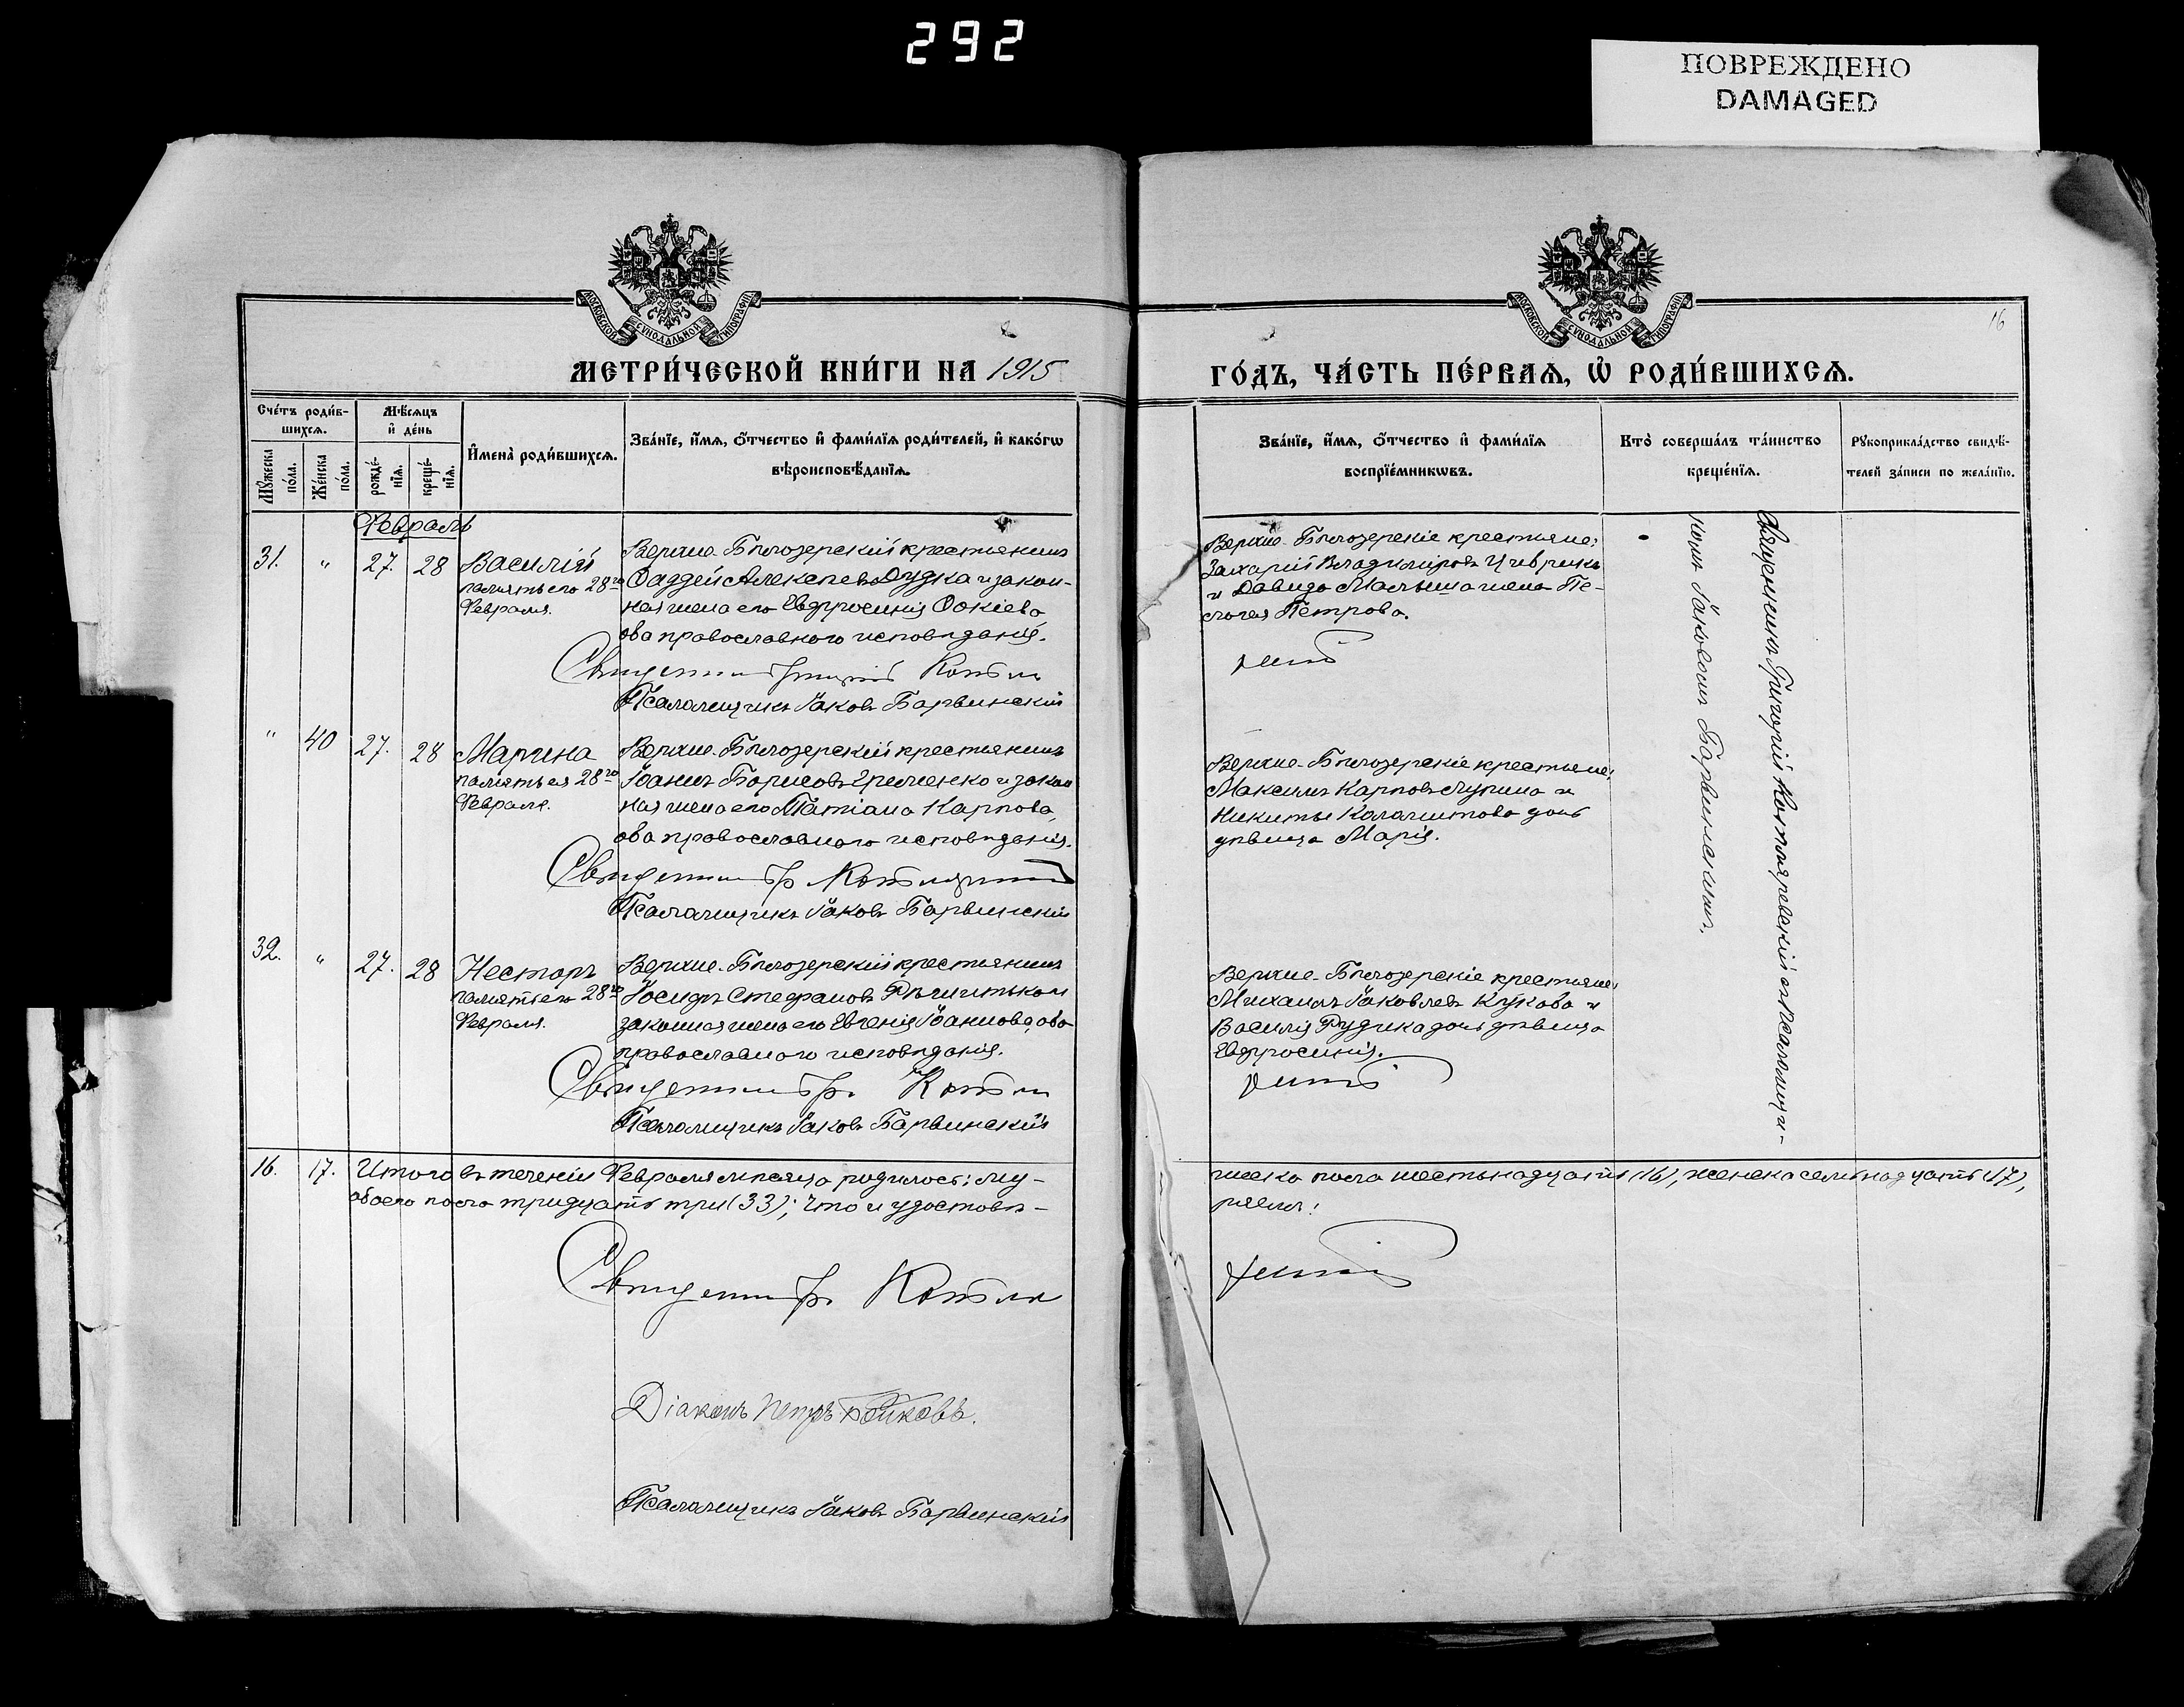 292
ПОВРЕЖДЕНО
DAMAGED
МОСКОВСКОЙ СѴНОДАЛЬНОЙ ТИПОГРАФІИ
МОСКОВСКОЙ СѴНОДАЛЬНОЙ ТИПОГРАФІИ
16
МЕТРИ́ЧЕСКОЙ КНИ́ГИ НА 1915
ГО́ДЪ, ЧА́СТЬ ПЕ́РВАѦ, Ѽ РОДИ́ВШИХСѦ.
Сче́тъ роди́вшихсѧ.
Мѹ́жеска по́ла.
Же́нска по́ла.
Мѣ́сѧцъ и҆ де́нь
рожде́нїѧ.
креще́нїѧ.
И҆мена̀ роди́вшихсѧ.
Зва́нїе, и҆́мѧ, ѻ҆́тчество и҆ фами́лїѧ роди́телей, и҆ како́гѡ
вѣроисповѣ́данїѧ.
Зва́нїе, и҆́мѧ, ѻ҆́тчество и҆ фами́лїѧ
воспрїе́мникѡвъ.
Кто̀ соверша́лъ та́инство
креще́нїѧ.
Рꙋкоприкла́дство свидѣ́-
телей за́писи по жела́нїю.
Февраль
31. " 27. 28 Василій
память его 28го
Февраля.
Верхне-Бѣлозерскій крестьянинъ
Фаддей Алексѣевъ Дудка и закон-
ная жена его Евфросинія Фокіева
оба православнаго исповѣданія.
Священникъ Григорій Котля
Псаломщикъ Іаковъ Барвинскій
Верхне-Бѣлозерскіе крестьяне:
Захарій Владиміровъ
и Давида Малыша жена Пе-
лагея Петрова.
" 40 27. 28 Марина
память ея 28го
Февраля.
Верхне-Бѣлозерскій крестьянинъ
Іоаннъ Борисовъ Гременко и закон
ная жена его Татіана Карпова,
оба православнаго исповѣданія.
Священникъ Гр. Котляревскій
Псаломщикъ Іаковъ Барвинскій
Верхне-Бѣлозерскіе крестьяне:
Максимъ Карповъ Лупина и
Никиты Калашникова дочь
дѣвица Марія.
32. " 27. 28 Несторъ
память его 28го
Февраля.
Верхне-Бѣлозерскій крестьянинъ
Іосифъ Стефановъ
законная жена его Евгенія Іоаннова, оба
православнаго исповѣданія.
Священникъ Гр. Котля
Псаломщикъ Іаковъ Барвинскій
Верхне-Бѣлозерскіе крестьяне:
Михаилъ Іаковлевъ Кукова и
Василія Рудика дочь дѣвица
Евфросинія.
Священникъ Григорій Котляревскій съ псаломщи-
комъ Іаковомъ Барвинскимъ.
16. 17. Итого въ теченіи Февраля мѣсяца родилось: му-
жеска пола шестьнадцать (16), женска семьнадцать (17),
обоего пола тридцать три (33); что и удостовѣ-
ряемъ:
Священникъ Гр. Котля
Діаконъ Петръ Бойковъ.
Псаломщикъ Іаковъ Барвинскій